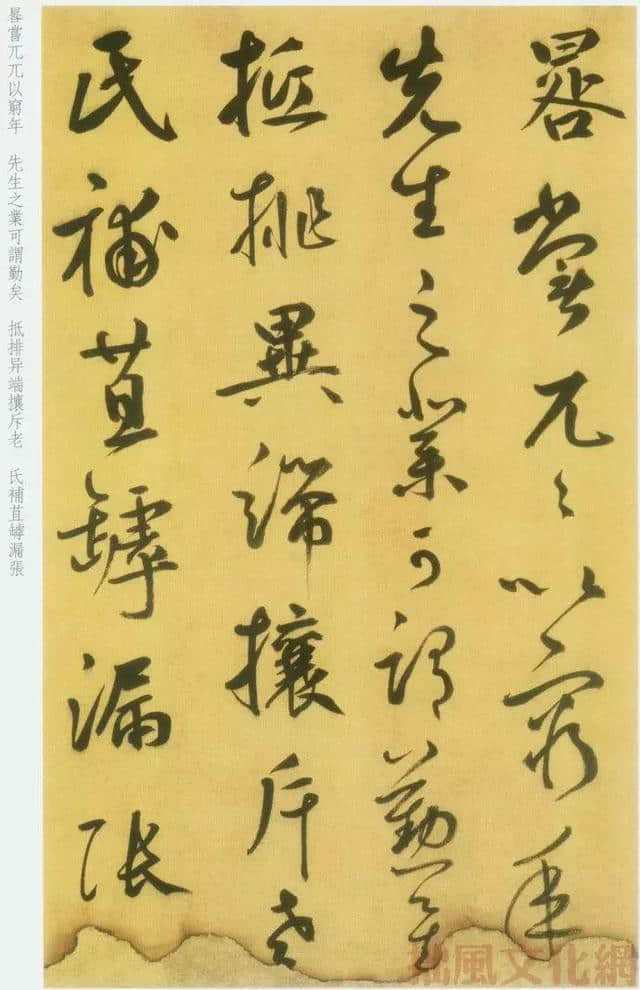 晷嘗兀々以窮年
先生之業可謂勤矣
抵排異端攘斥老
氏補苴罅漏張
晷嘗兀兀以窮年　先生之業可謂勤矣　抵排异端攘斥老　氏補苴罅漏張
拙風文化網